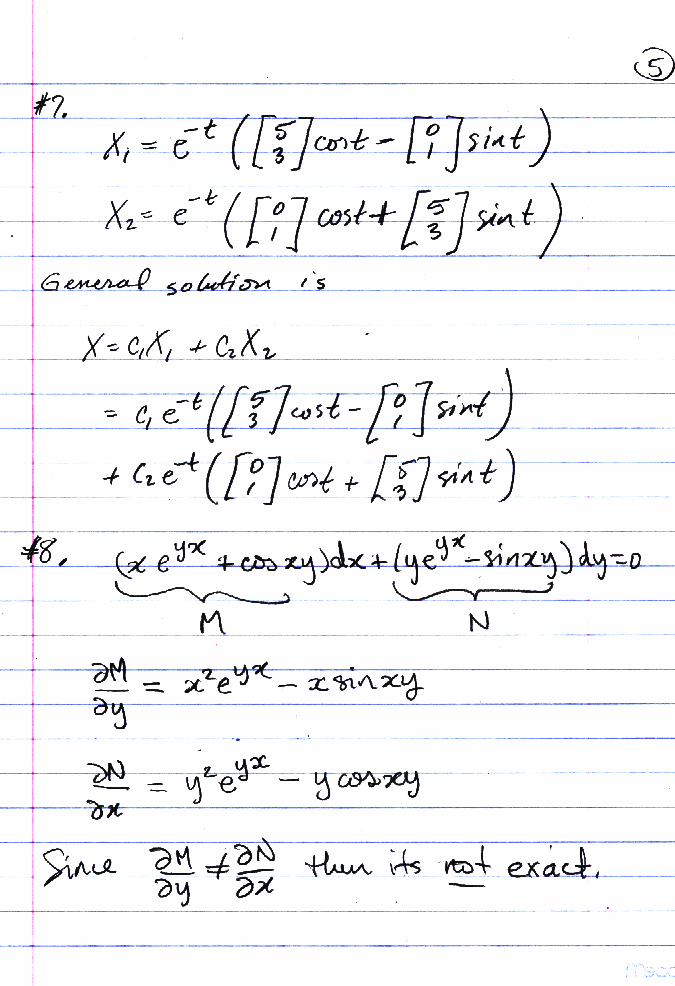 ⑤
#7.
X₁ = e^{-t} ( [5 3] cost - [0 1] sint )
X₂ = e^{-t} ( [0 1] cost + [5 3] sint )
General solution is
X = C₁X₁ + C₂X₂
= C₁ e^{-t} ( [5 3] cost - [0 1] sint )
+ C₂ e^{-t} ( [0 1] cost + [5 3] sint )
#8. (x e^{yx} + cos xy)dx + (y e^{yx} - sinxy) dy = 0
M N
∂M/∂y = x² e^{yx} - x sinxy
∂N/∂x = y² e^{yx} - y cosxy
Since ∂M/∂y ≠ ∂N/∂x then its not exact.